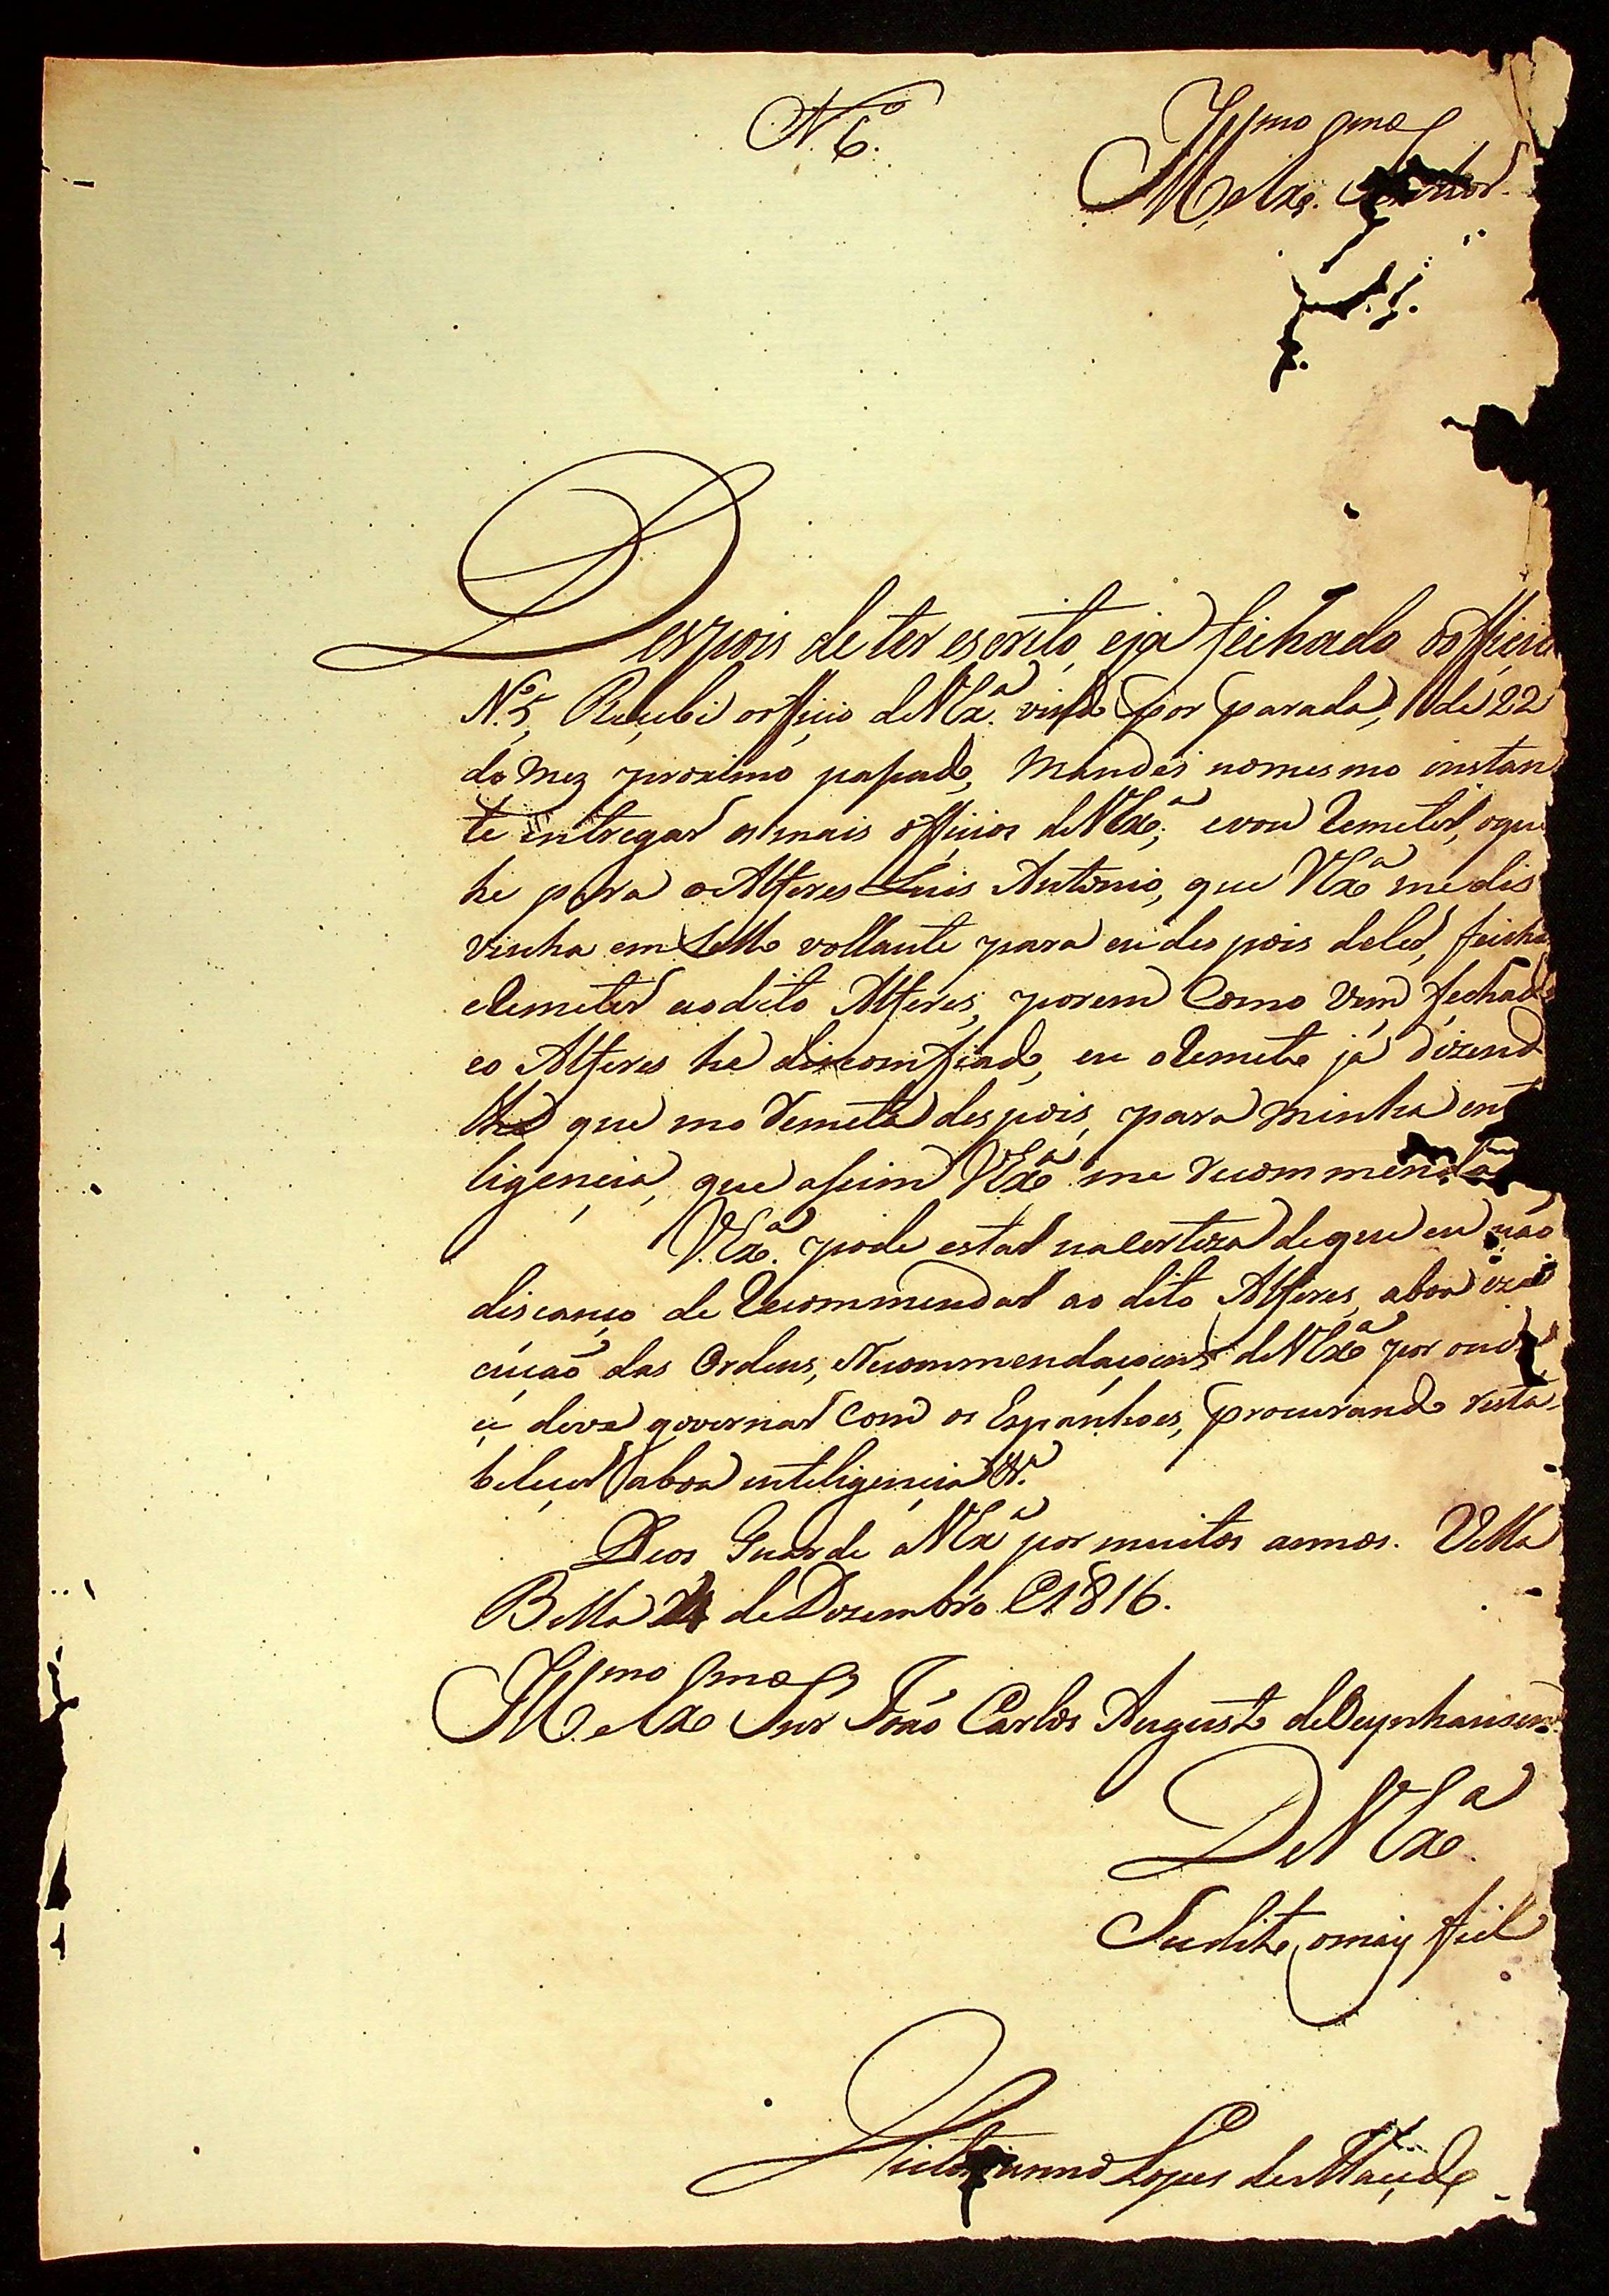 N.º 6.
Ill.mo e Ex.mo Senhor.
Despois de ter escrito, eja fechado o officio
N.º 5, Reçubi o officio de V Ex.ª vindo por parada, de 22
do mez proximo passado, mandei nomesmo instan
te entregar os mais officios de V Ex.ª; evou Remeter, oque
he para o Alferes Luis Antonio, que V Ex.ª me dis
vinha em Sello vollante para eu des pois deler, feicha
eRemeter ao dito Alferes, porem Como Vem fechado
eo Alferes he disconfiado, eu oRemeto já dizend
lhe que mo Remeta despois, para minha ent
ligençia, que assim V Ex.ª me recommenda
V. Ex.ª pode estar nacerteza deque eu não
discanço de Recommendar ao dito Alferes, aboa exe
cuçaõ das Ordens, eRecommendaçoens de V Ex.ª por onde
çe deve governar com os Espanhoes, procurando resta-
beleçer aboa inteligençia &.ª
Deos Guarde a V Ex.ª por muitos annos. Villa
Bella de Dezembro e 1816.
Ill.mo e Ex.mo Snr João Carlos Augusto de Oeynhausen
De V Ex.ª
Sudito, omais fiel
Lopes de Maçedo